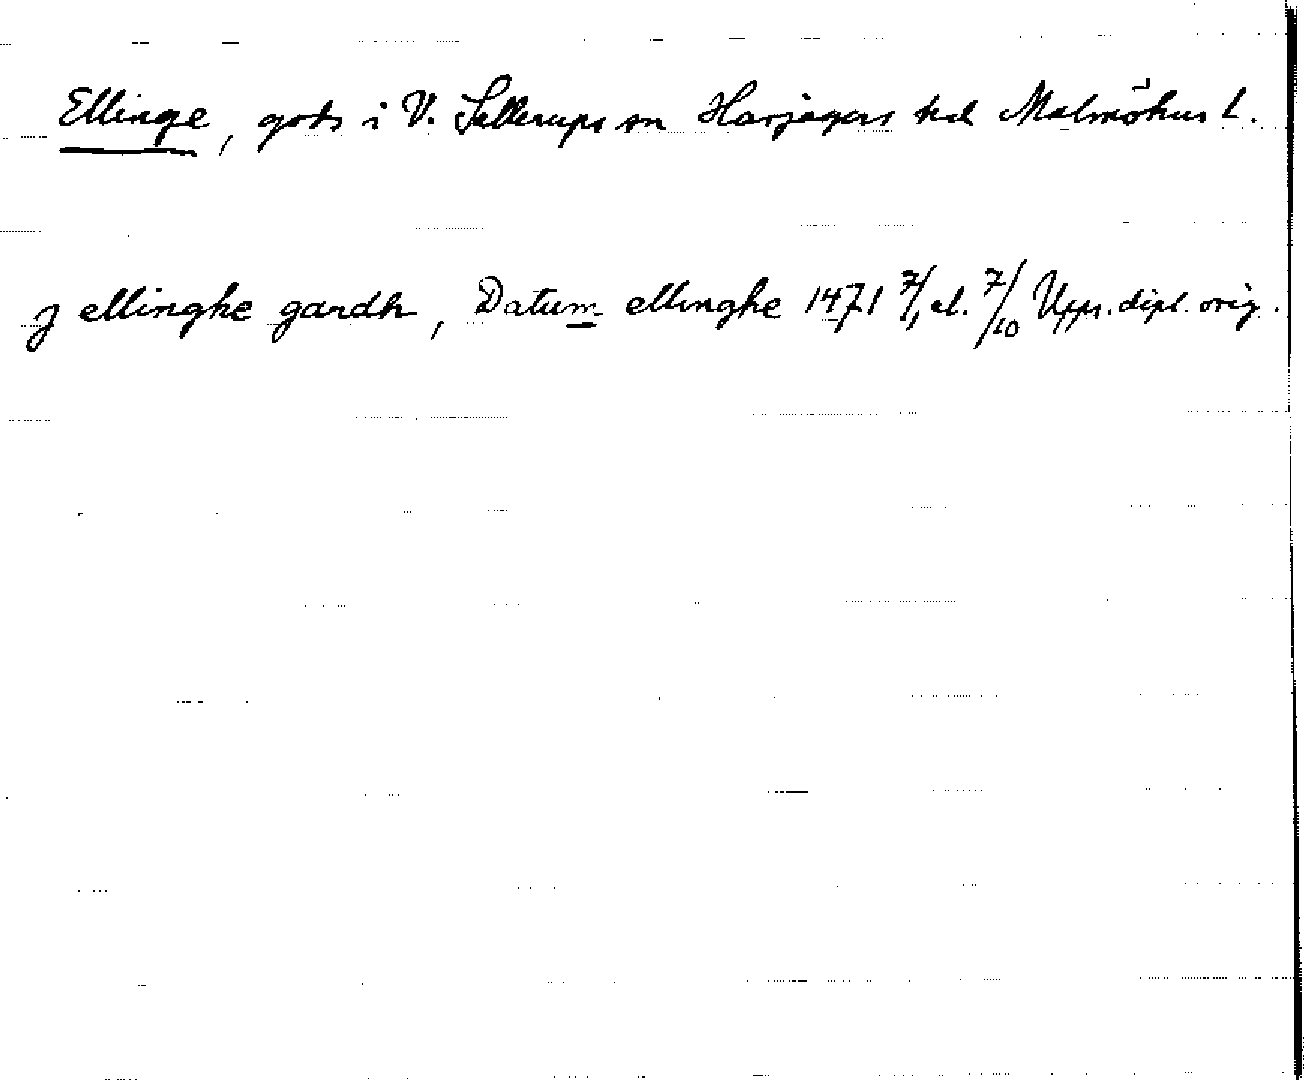 Ellinge, gods i V. Sallerups sn Harjagers hd Malmöhus L.
j ellinghe gardh, Datum ellinghe 1471 7/1 el. 7/10 Upps. dipl. orig.